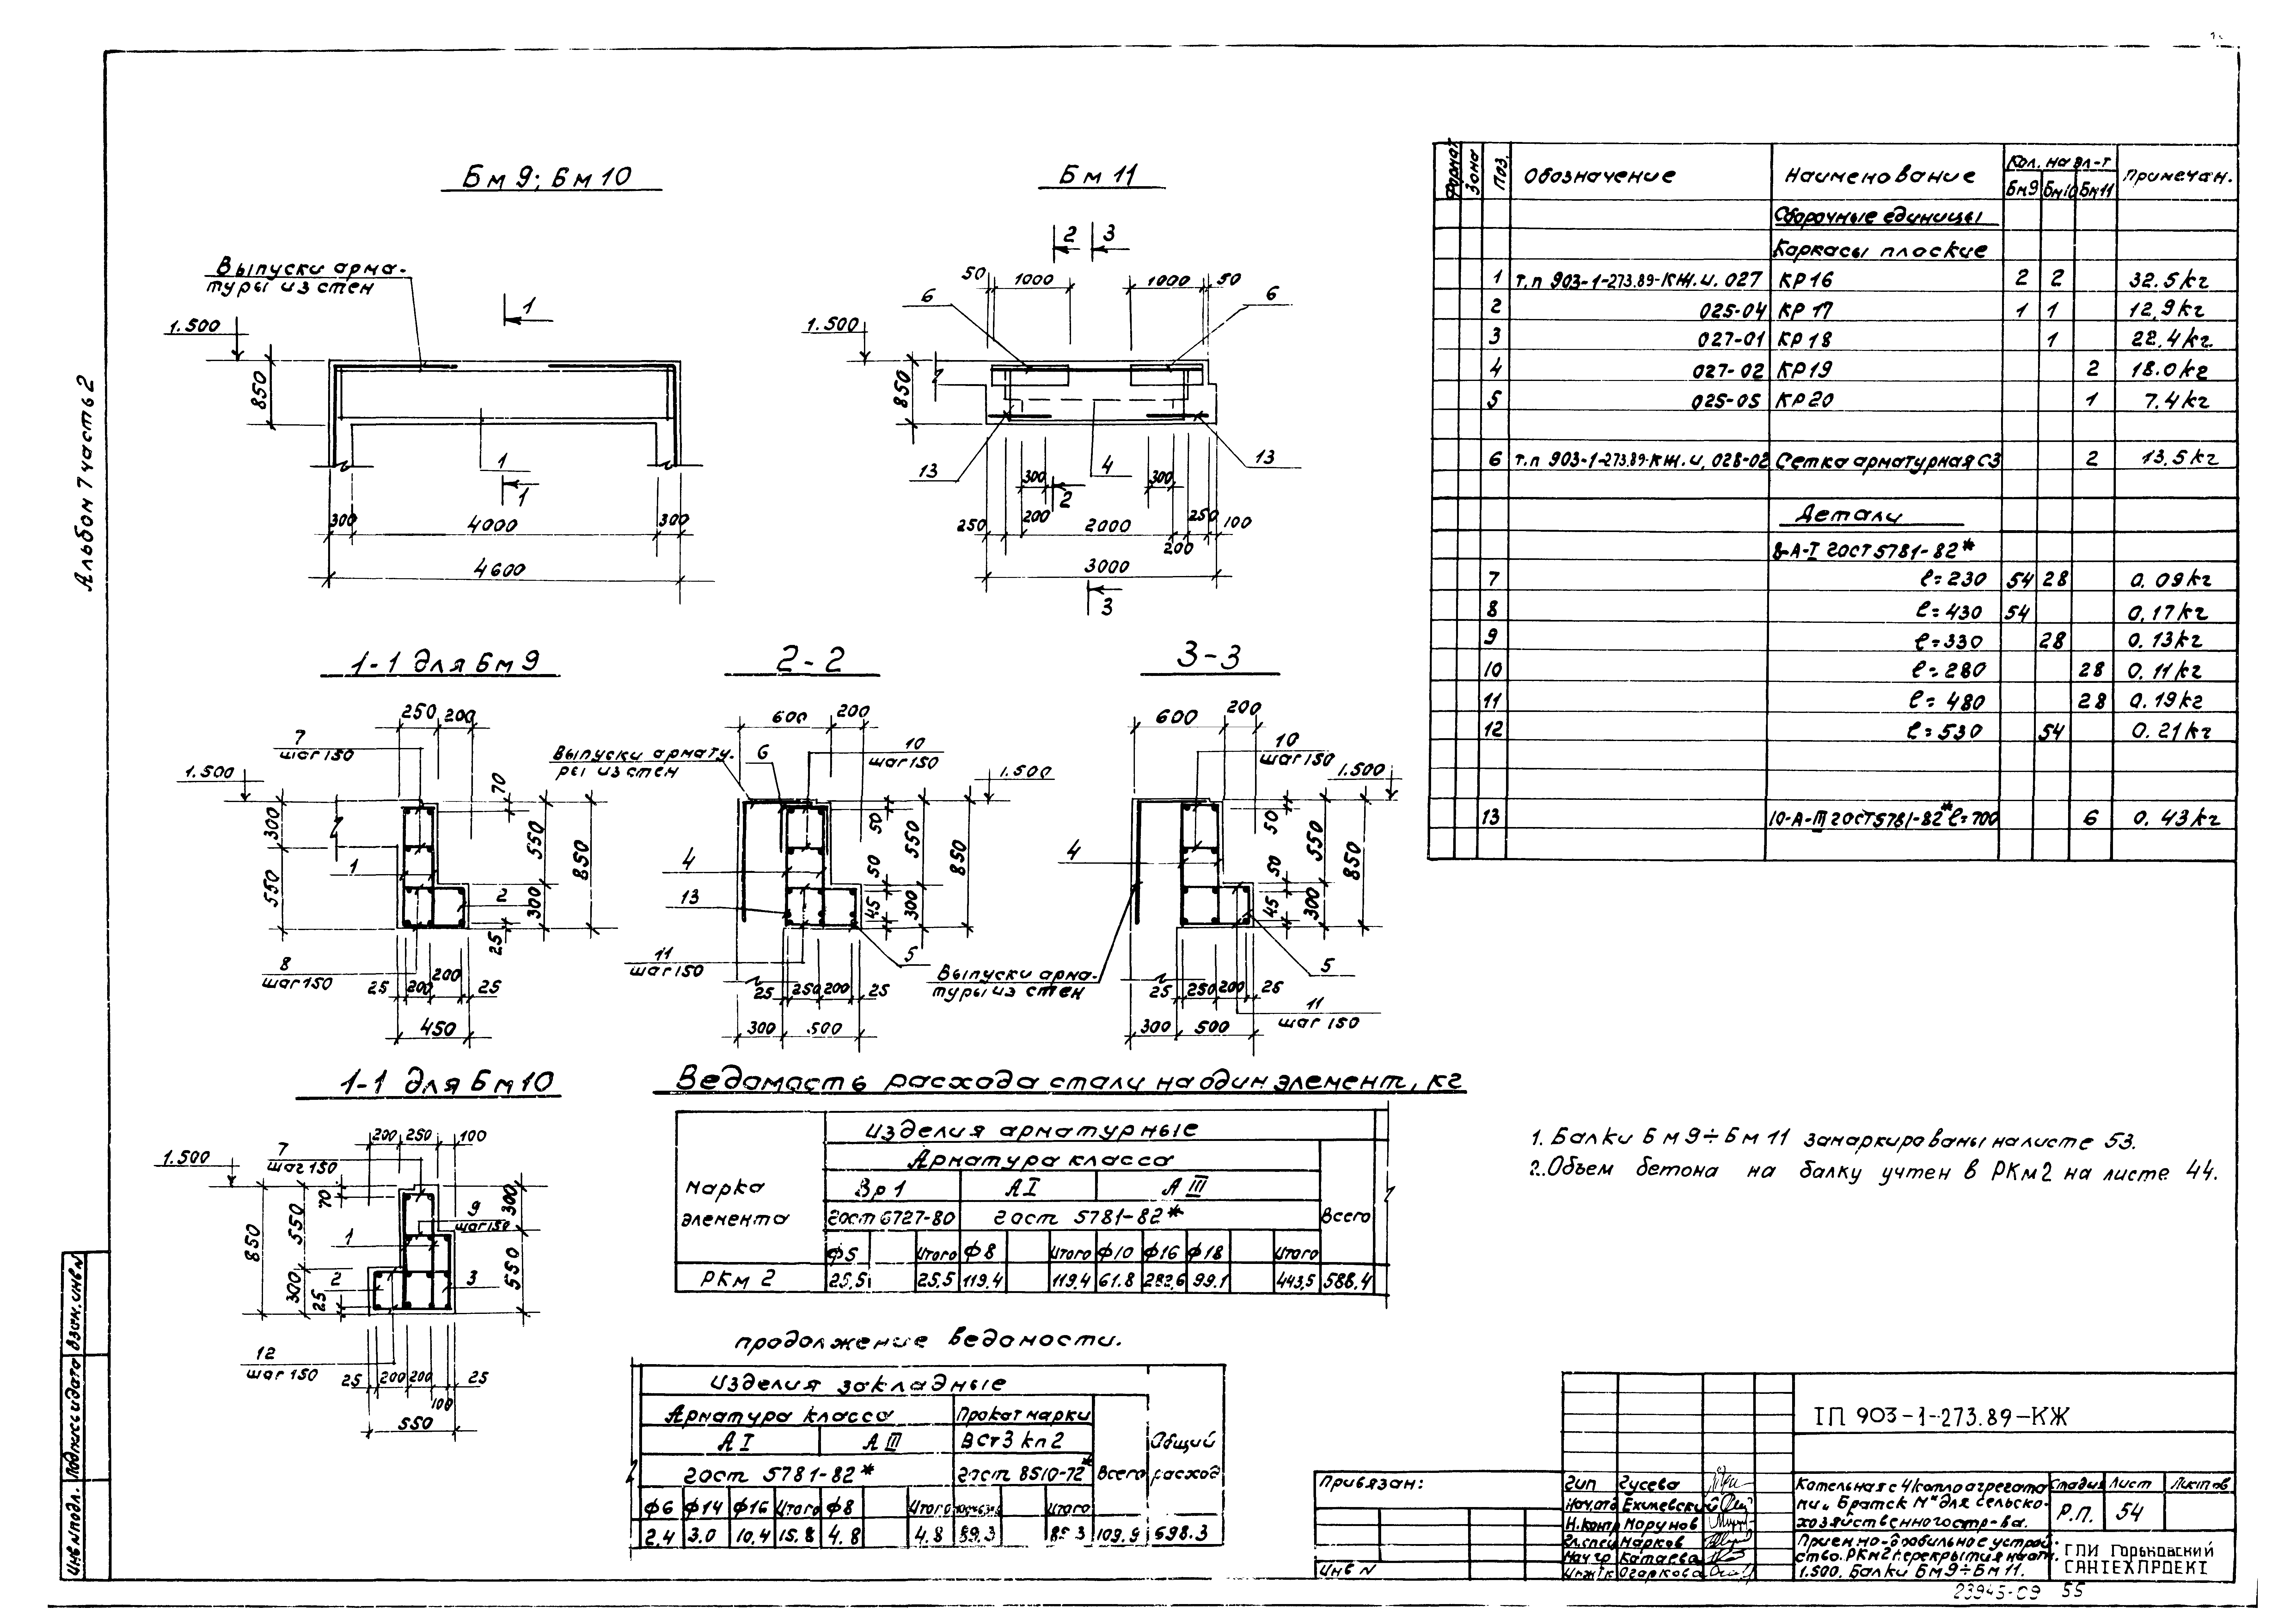 Альбом 7 часть 2
Бм 9; Бм 10
Выпуски арма-
туры из стен
1.500
850
1
1
1
300
4000
300
4600
Бм 11
2
3
50
1000
1000
50
6
6
1.500
850
13
4
13
300
2
300
250
200
2000
250
100
200
3000
3
1-1 для Бм 9
250
200
7
шаг 150
1.500
70
300
550
550
850
1
2
300
25
8
шаг 150
200
25
200
25
450
2-2
600
200
Выпуски армату-
ры из стен
6
10
шаг 150
1.500
50
550
850
4
50
13
45
300
11
шаг 150
5
25
250
200
25
300
500
3-3
600
200
10
шаг 150
1.500
50
550
850
4
50
45
300
Выпуски арма-
туры из стен
5
25
250
200
25
11
шаг 150
300
500
1-1 для Бм 10
200
250
100
7
шаг 150
1.500
70
300
9
шаг 150
850
550
1
550
300
2
3
25
12
шаг 150
25
200
200
25
100
550
Формат
Зона
Поз.
Обозначение
Наименование
Кол. на эл-т
Бм9
Бм10
Бм11
Примечан.
Сборочные единицы
Каркасы плоские
1 т.п 903-1-273.89-КЖ.и. 027 КР 16 2 2 32.5 кг
2 025-04 КР 17 1 1 12.9 кг
3 027-01 КР 18 1 22.4 кг
4 027-02 КР 19 2 18.0 кг
5 025-05 КР 20 1 7.4 кг
6 т.п 903-1-273.89-КЖ.и. 028-02 Сетка арматурная С3 2 13.5 кг
Детали
8-А-I ГОСТ 5781-82*
7 ℓ=230 54 28 0.09 кг
8 ℓ=430 54 0.17 кг
9 ℓ=330 28 0.13 кг
10 ℓ=280 28 0.11 кг
11 ℓ=480 28 0.19 кг
12 ℓ=530 54 0.21 кг
13 10-А-III ГОСТ 5781-82* ℓ=700 6 0.43 кг
Ведомость расхода стали на один элемент, кг
Марка
элемента
Изделия арматурные
Арматура класса
Вр 1
А I
А III
Всего
ГОСТ 6727-80
ГОСТ 5781-82*
Ф5 Итого Ф8 Итого Ф10 Ф16 Ф18 Итого
РКм 2 25.5 25.5 119.4 119.4 61.8 282.6 99.1 443.5 588.4
Продолжение ведомости.
Изделия закладные
Арматура класса
Прокат марки
А I
А III
ВСт3 кп2
Всего
Общий
расход
ГОСТ 5781-82*
ГОСТ 8510-72*
Ф6 Ф14 Ф16 Итого Ф8 Итого Итого
2.4 3.0 10.4 15.8 4.8 4.8 89.3 109.9 698.3
1. Балки Бм 9÷Бм 11 замаркированы на листе 53.
2. Объем бетона на балку учтен в РКм2 на листе 44.
Привязан:
Инв N
ТП 903-1-273.89-КЖ
Гип Гусева
Нач.отд Ехилевский
Н.контр Морунов
Гл.спец Марков
Нач гр Катаева
Инж Iк Огаркова
Котельная с 4 котлоагрегата
ми „Братск М" для сельско-
хозяйственного стр-ва.
Стадия
Лист
Листов
Р.П.
54
Приемно-дробильное устрой-
ство. РКм2 перекрытия на отм.
1.500. Балки Бм 9÷Бм 11.
ГПИ Горьковский
САНТЕХПРОЕКТ
23945-09 55
Взам. инв N
Подпись и дата
Инв N подл.